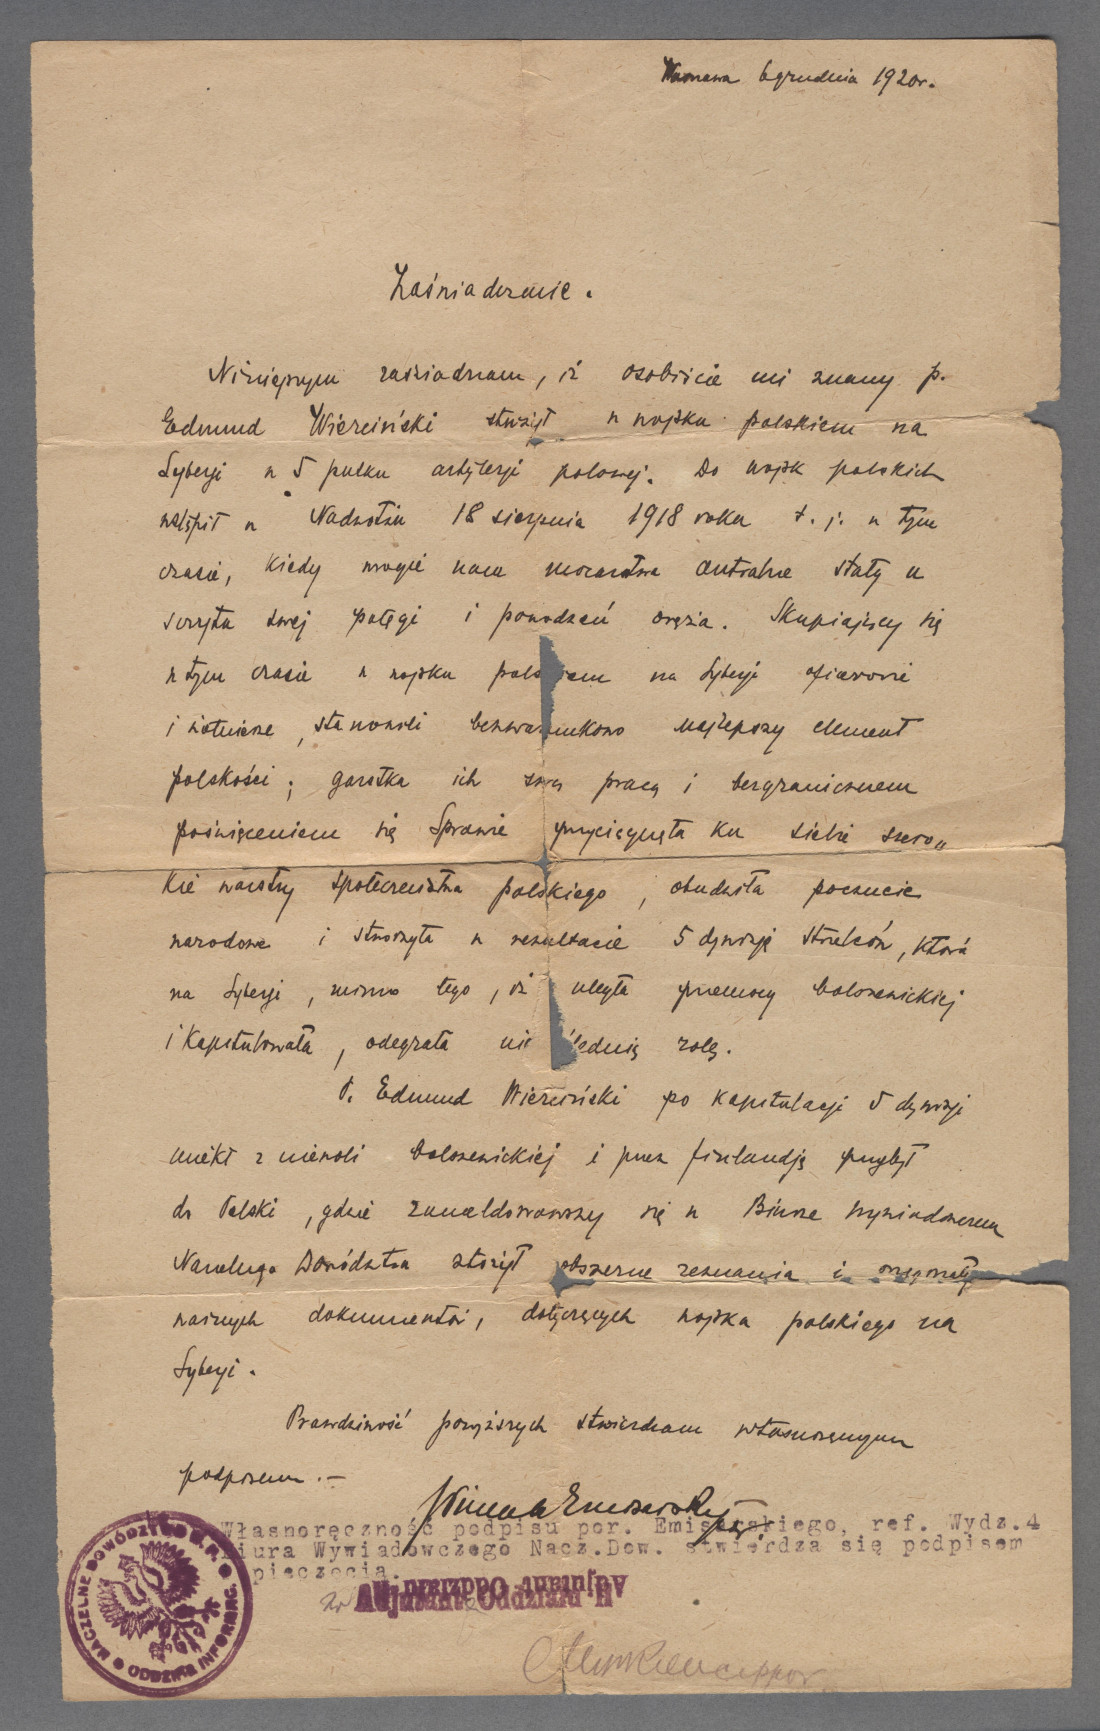 Warszawa 6 grudnia 1920r.
Zaświadczenie.
Niniejszym zaświadczam, iż osobiście mi znany p.
Edmund Wierciński służył w wojsku polskiem na
Syberji w 5 pułku artylerji polowej. Do wojsk polskich
wstąpił w 18 sierpnia 1918 roku t. j. w tym
czasie, kiedy wrogie nam mocarstwa centralne stały u
szczytu swej potęgi i powodzeń oręża. Skupiający się
w tym czasie w wojsku polskiem na Syberji oficerowie
i żołnierze, stanowili bezwarunkowo najlepszy element
polskości; garstka ich swą pracą i bezgranicznem
poświęceniem się Sprawie przyciągnęła ku siebie szero„
kie warstwy społeczeństwa polskiego, obudziła poczucie
narodowe i stworzyła w rezultacie 5 dywizję strzelców, która
na Syberji, mimo tego, iż uległa przemocy bolszewickiej
i kapitulowała, odegrała nie lednią rolę.
P. Edmund Wierciński po kapitulacji 5 dywizji
uciekł z niewoli bolszewickiej i przez finlandję przybył
do Polski, gdzie zameldowawszy się w Biurze Wywiadowczem
Naczelnego Dowództwa złożył obszerne zeznania i
ważnych dokumentów, dotyczących wojska polskiego na
Syberji.
Prawdziwość powyższych stwierdzam własnoręcznym
podpisem.—
Emisarski
Własnoręczność podpisu por. Emisarskiego, ref. Wydz.4
Biura Wywiadowczego Nacz.Dow. stwierdza się podpisem
pieczęcią.
Adjutant Oddziału II
NACZELNE DOWÓDZTWO W.P. ODDZIAŁ INFORMAC.